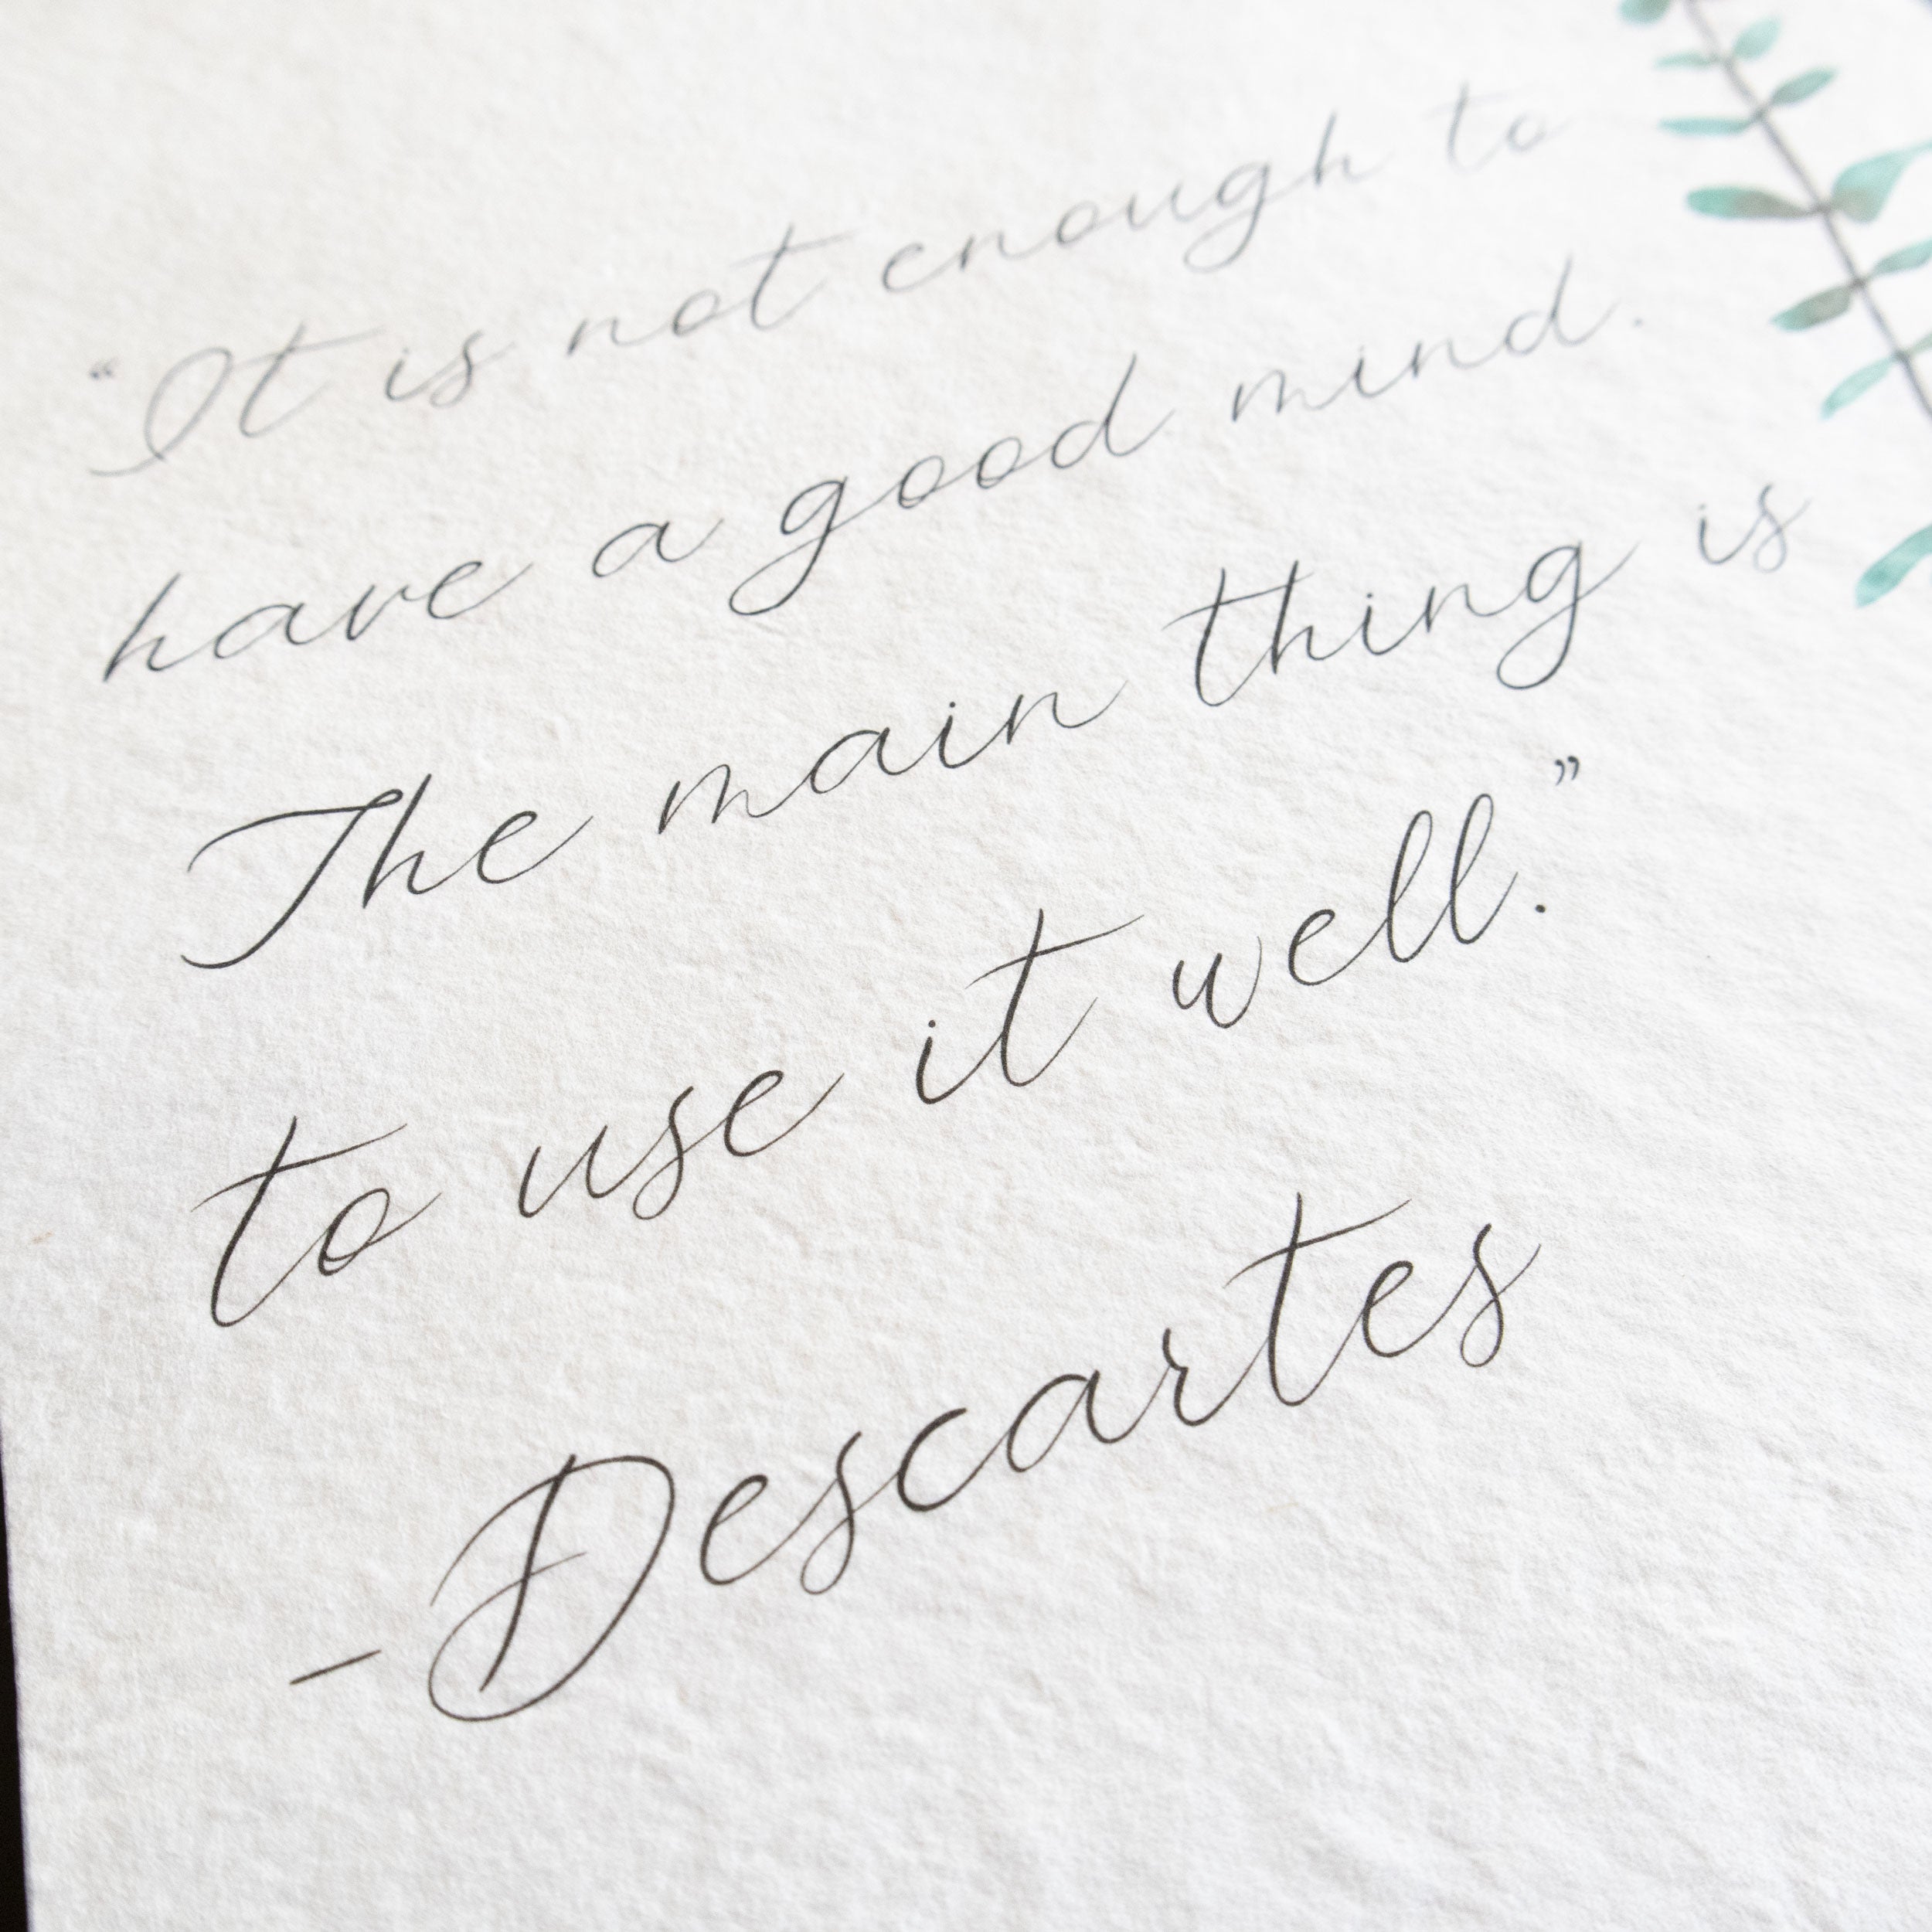 “It is not enough to
have a good mind.
The main thing is
to use it well.”
- Descartes